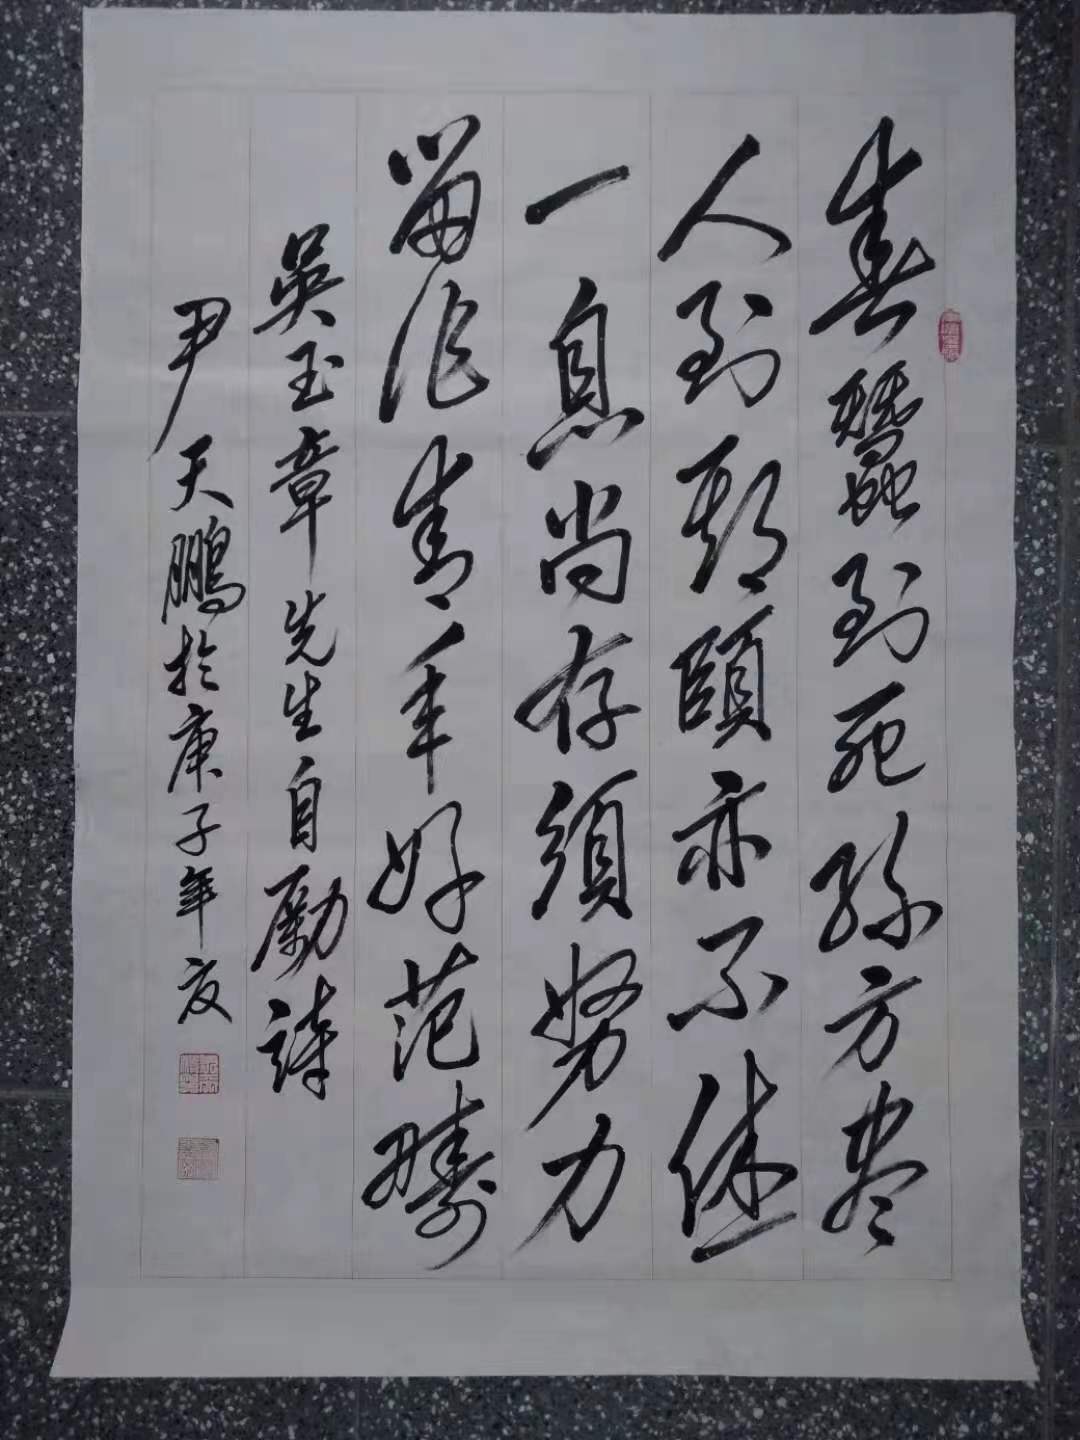 春蠶到死絲方盡
人到期頤亦不休
一息尚存須努力
留作青年好范疇
吳玉章先生自勵詩
尹天鵬於庚子年夏